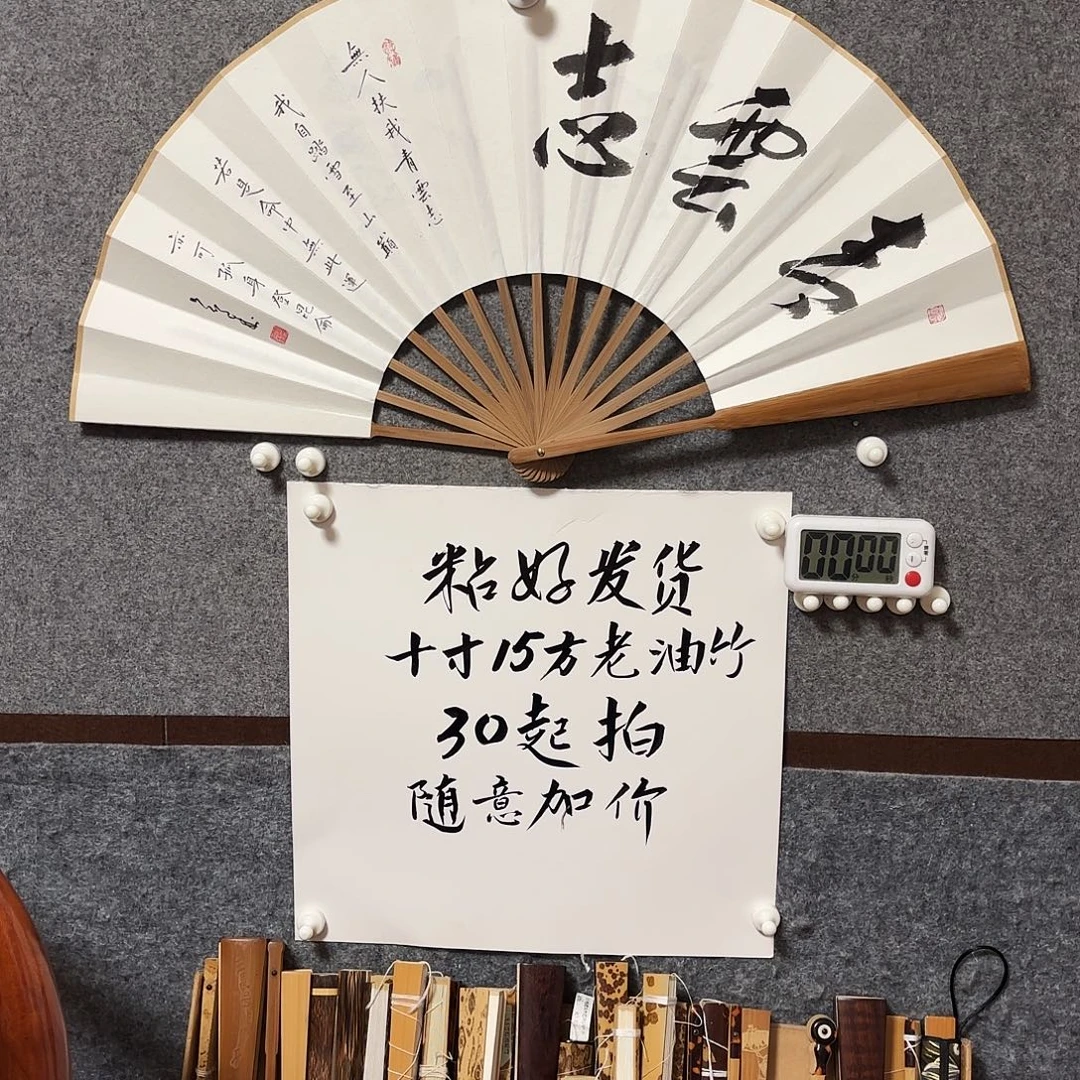 雲志
無人扶我青雲志
我自踏雪至山巔
若是命中無此運
亦可孤身登昆侖
粘好发货
十寸15方老油竹
30起拍
随意加价
00 00